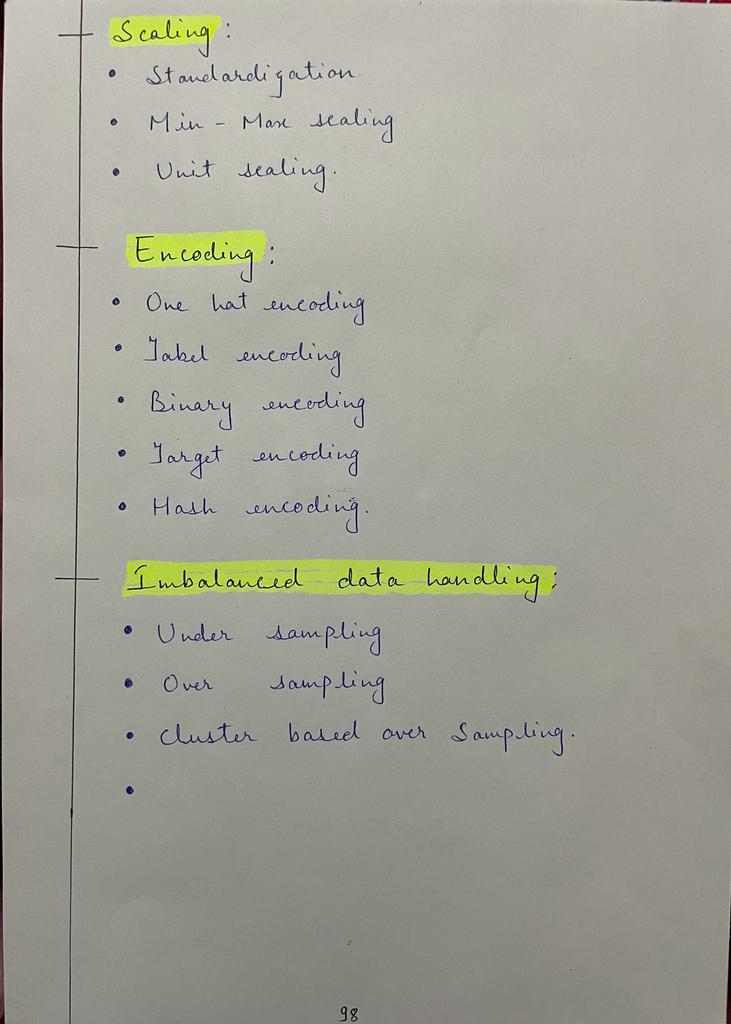 Scaling:
• Standardization
• Min - Max scaling
• Unit scaling.
Encoding:
• One hat encoding
• Label encoding
• Binary encoding
• Target encoding
• Hash encoding.
Imbalanced data handling:
• Under sampling
• Over sampling
• Cluster based over Sampling.
•
98